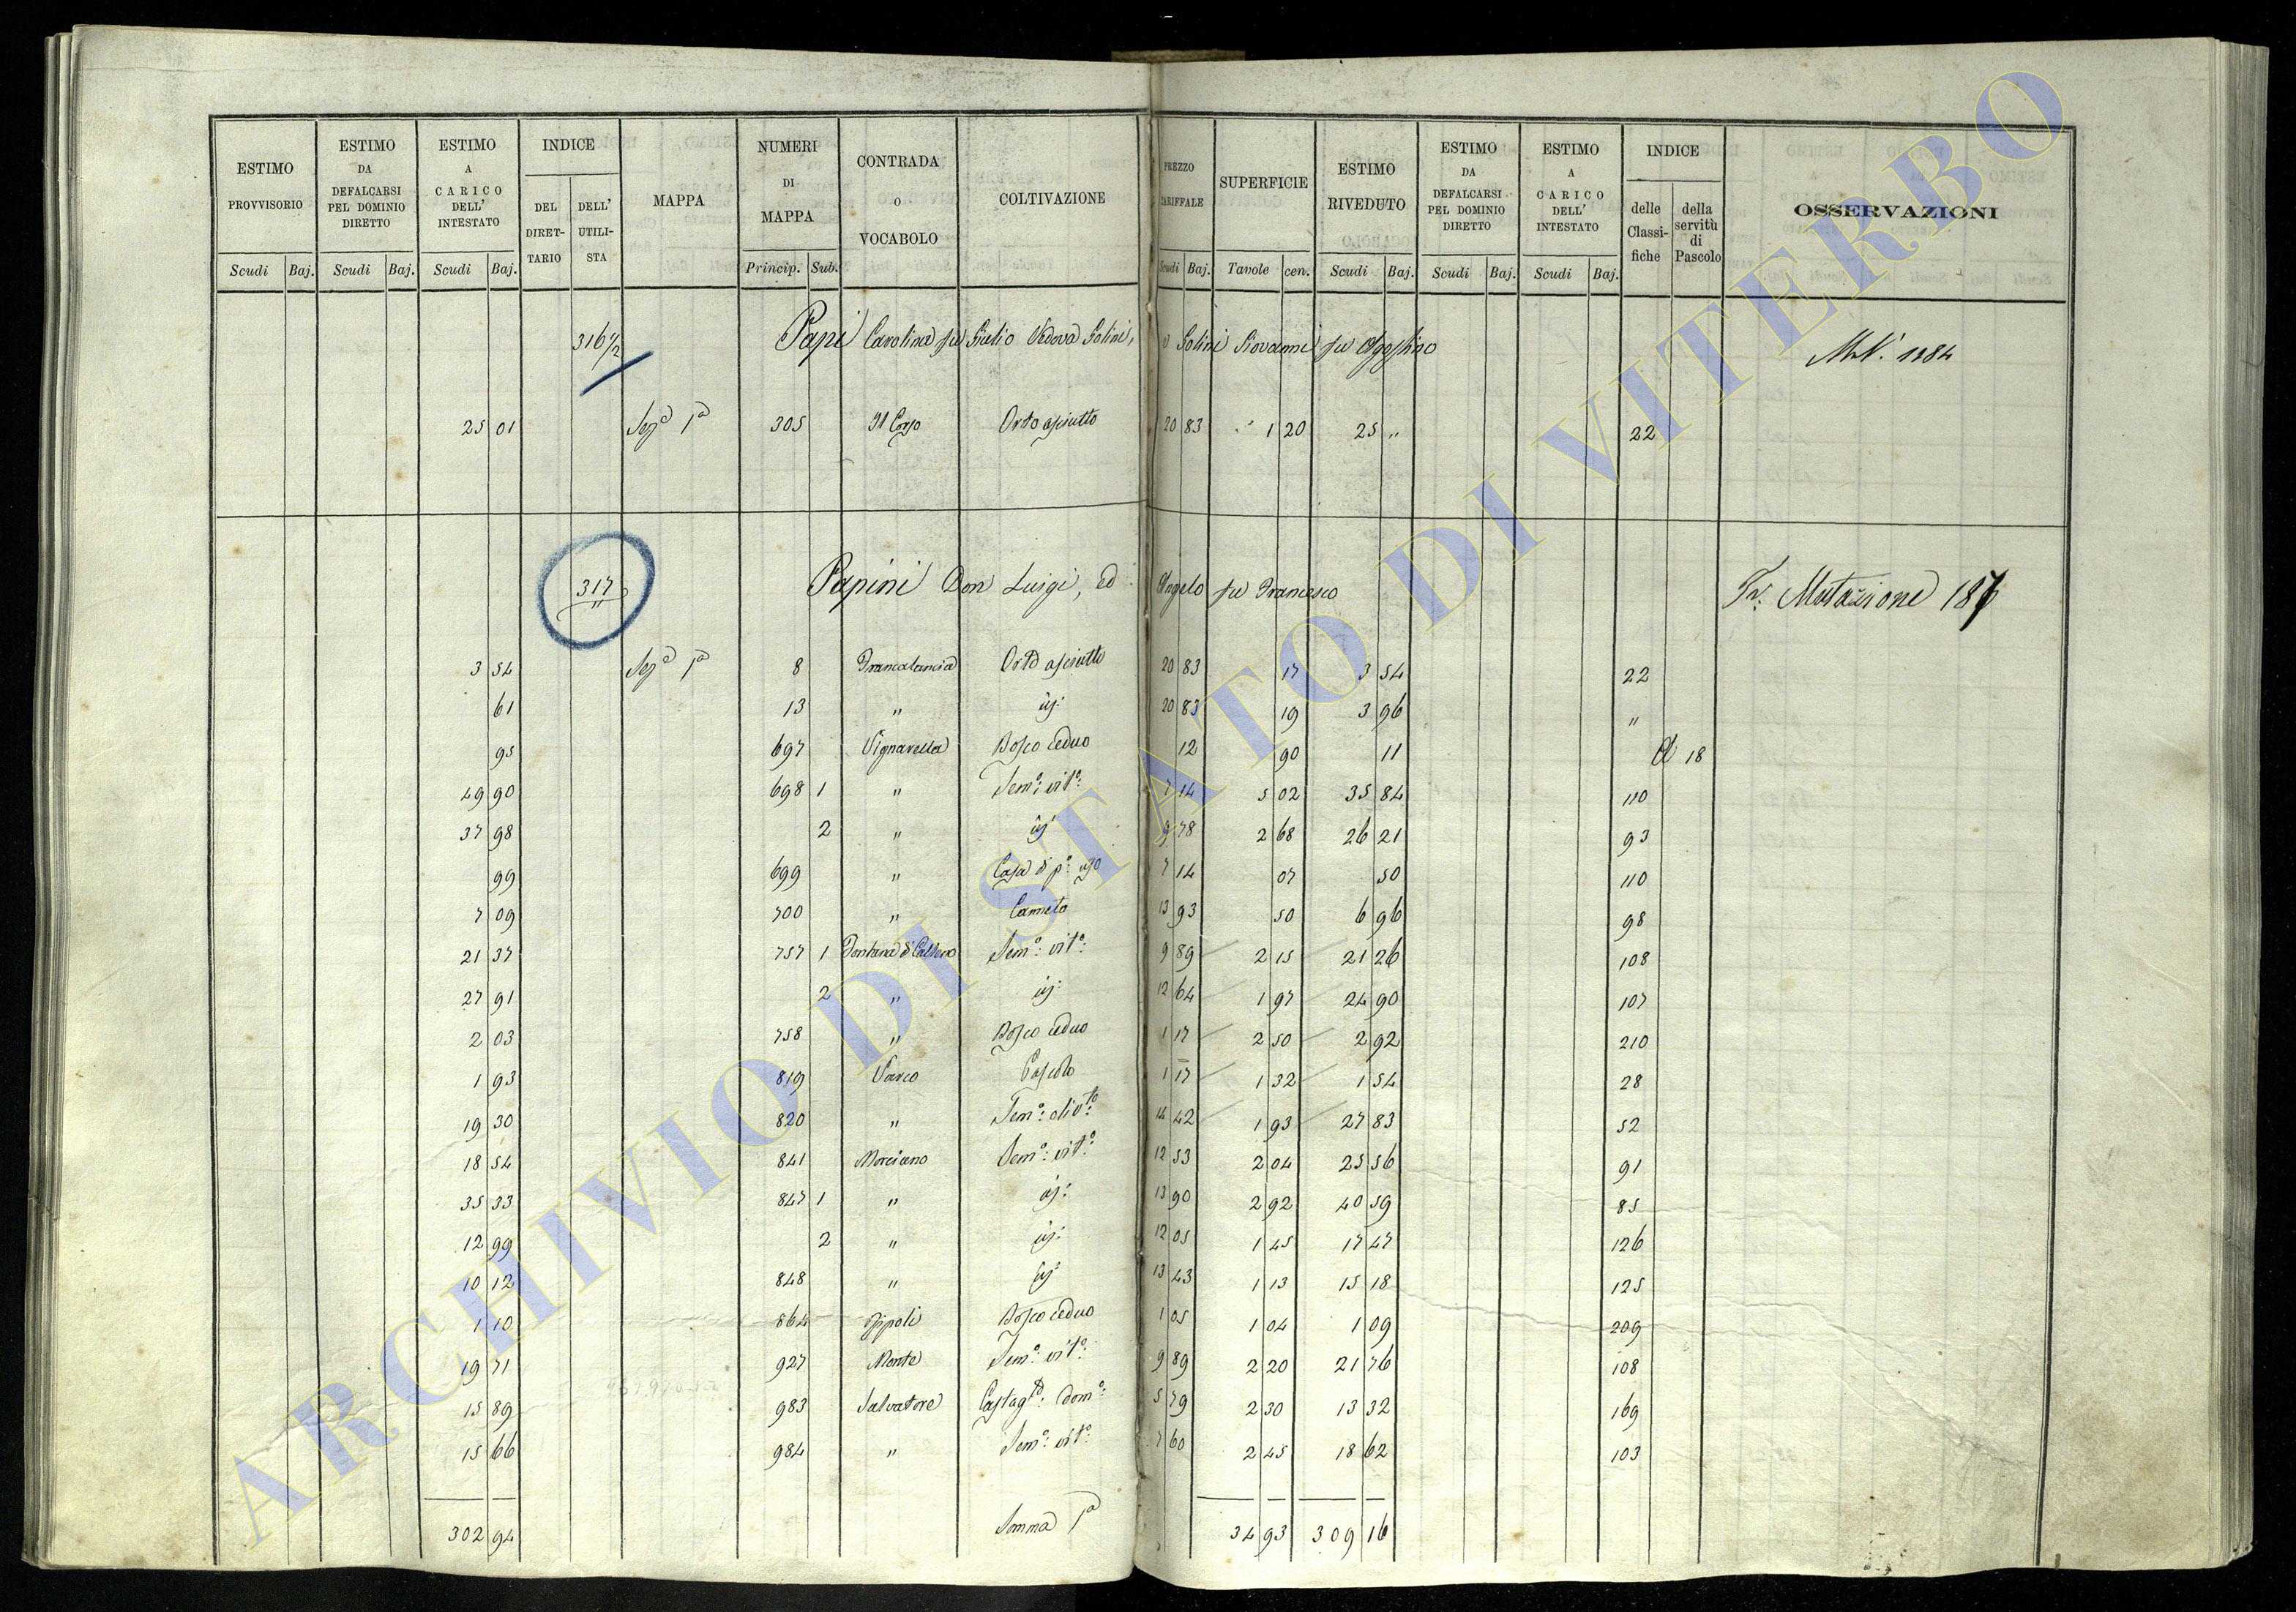 ESTIMO PROVVISORIO | ESTIMO DA DEFALCARSI PEL DOMINIO DIRETTO | ESTIMO A CARICO DELL' INTESTATO | INDICE | MAPPA | NUMERI DI MAPPA | CONTRADA O VOCABOLO | COLTIVAZIONE | PREZZO TARIFFALE | SUPERFICIE | ESTIMO RIVEDUTO | ESTIMO DA DEFALCARSI PEL DOMINIO DIRETTO | ESTIMO A CARICO DELL' INTESTATO | INDICE | OSSERVAZIONI
DEL DIRETTARIO | DELL' UTILISTA | delle Classifiche | della servitù di Pascolo
Scudi | Baj. | Scudi | Baj. | Scudi | Baj. | Princip. | Sub. | Scudi | Baj. | Tavole | cen. | Scudi | Baj. | Scudi | Baj. | Scudi | Baj.
316 1/2 Papi Carolina fu Giulio Vedova Solini, Solini Giovanni fu Agostino 1284
25 01 Sezª 1ª 305 Il Corso Orto asciutto 20 83 " 1 20 25 " 22
317 Papini Don Luigi, ed Angelo fu Francesco Mutazione 187
3 54 Sezª 1ª 8 Francalancia Orto asciutto 20 83 17 3 54 22
61 13 " id: 20 83 19 3 96 "
95 697 Vignarella Bosco ceduo 12 90 11 A 18
49 90 698 1 " Semº: vitº: 7 14 5 02 35 84 110
37 98 2 " id: 9 78 2 68 26 21 93
99 699 " Casa di pº: uso 7 14 07 50 110
7 09 700 " Canneto 13 93 50 6 96 98
21 37 757 1 Fontana di Semº: vitº: 9 89 2 15 21 26 108
27 91 2 " id: 12 64 1 97 24 90 107
2 03 758 " Bosco ceduo 1 17 2 50 2 92 210
1 93 819 Pascolo 1 17 1 32 1 54 28
19 30 820 " Semº: olivto: 14 42 1 93 27 83 52
18 54 841 Morciano Semº: vitº: 12 53 2 04 25 56 91
35 33 847 1 " id: 13 90 2 92 40 59 85
12 99 2 " id: 12 05 1 45 17 47 126
10 12 848 " id: 13 43 1 13 15 18 125
1 10 864 Bosco ceduo 1 05 1 04 1 09 209
19 71 927 Monte Semº: vitº: 9 89 2 20 21 76 108
15 89 983 Salvatore Castagto: domº: 5 79 2 30 13 32 169
15 66 984 " Semº: vitº: 7 60 2 45 18 62 103
302 94 Somma 1ª 34 93 309 16
ARCHIVIO DI STATO DI VITERBO